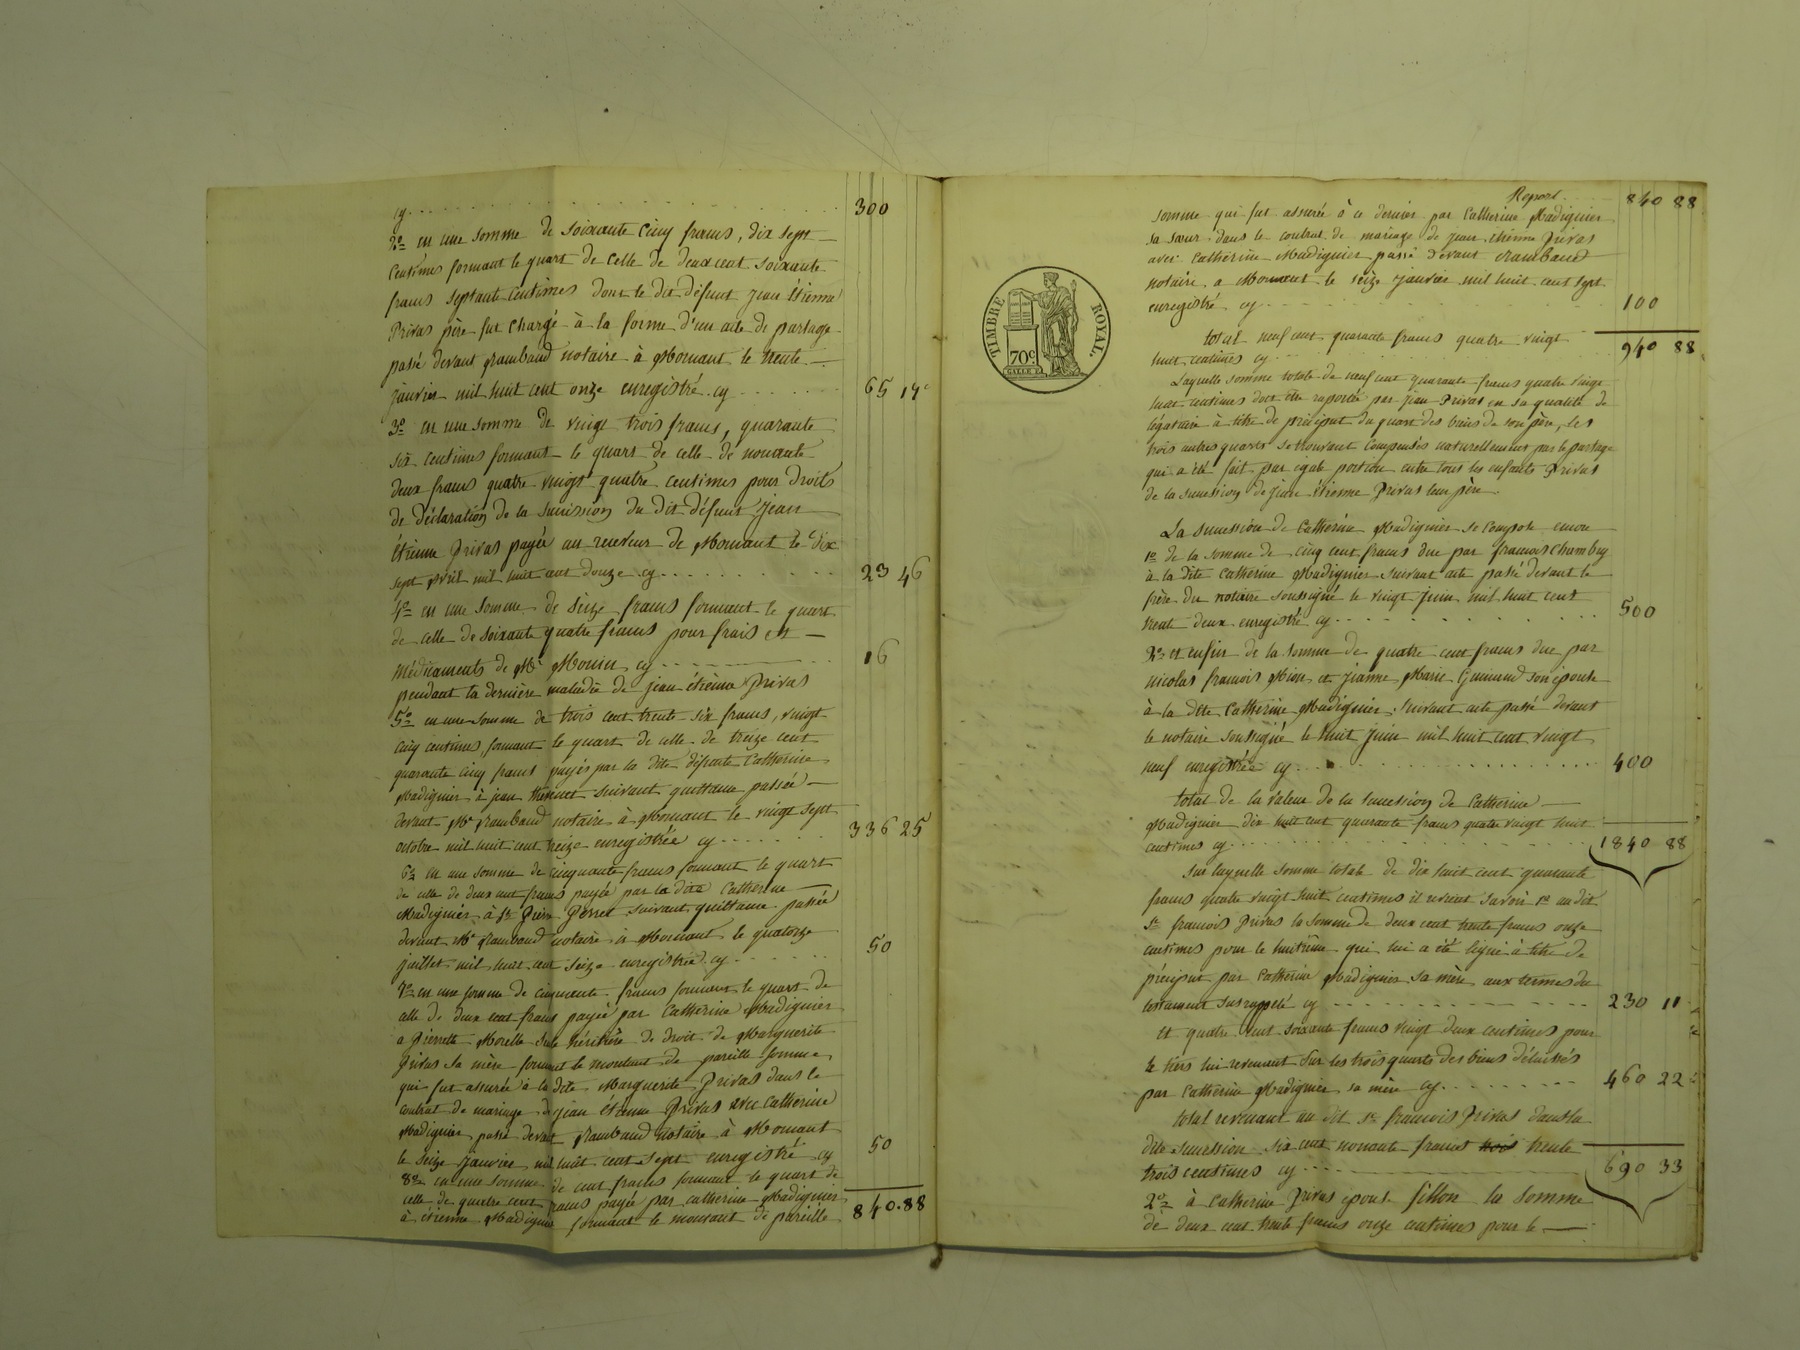 cy . . . . . . . . . . . . 300
2º en une somme de soixante cinq francs, dix sept —
centimes formant le quart de celle de deux cent soixante
francs septante centimes dont le dit défunt jean étienne
Privas père fut chargé à la forme d'un acte de partage
passé devant frambaud notaire à Mornant le trente —
janvier mil huit cent onze enregistré cy . . . . . . 65 17c
3º en une somme de vingt trois francs, quarante
six centimes formant le quart de celle de nonante
deux francs quatre vingt quatre centimes pour droits
de déclaration de la succession du dit défunt jean
étienne Privas payée au receveur de Mornant le dix
sept avril mil huit cent douze cy . . . . . . . . 23 46
4º en une somme de seize francs formant le quart
de celle de soixante quatre francs pour frais et —
médicaments de Mr Monier cy . . . . . . . . 16
pendant la dernière maladie de jean étienne Privas
5º en une somme de trois cent trente six francs, vingt
cinq centimes, formant le quart de celle de treize cent
quarante cinq francs payés par la dite défunte Catherine
Madignier à jean thevenet suivant quittance passée —
devant Me frambaud notaire à Mornant le vingt sept
octobre mil huit cent treize enregistrée cy . . . . . 336 25
6º en une somme de cinquante francs formant le quart
de celle de deux cent francs payée par la dite Catherine —
Madignier à Sr Pierre Perret suivant quittance passée
devant Me frambaud notaire à Mornant le quatorze
juillet mil huit cent seize enregistrée cy . . . . . . 50
7º en une somme de cinquante francs formant le quart de
celle de deux cent francs payée par Catherine Madignier
a Pierrette Morelle seule héritière de droit de Marguerite
Privas sa mère formant le montant de pareille somme
qui fut assurée à la dite Marguerite Privas dans le
contrat de mariage de jean étienne Privas avec Catherine
Madignier passé devant frambaud notaire à Mornant
le seize janvier mil huit cent sept enregistré cy 50
8º en une somme de cent francs formant le quart de
celle de quatre cent francs payée par catherine Madignier
à étienne Madignier formant le montant de pareille 840.88
Report . . . 840 88
somme qui fut assurée à ce dernier par Catherine Madignier
sa sœur dans le contrat de mariage de jean étienne Privas
avec Catherine Madignier passé devant frambaud
notaire a Mornant le seize janvier mil huit cent sept
enregistré cy . . . . . . . . 100
total neuf cent quarante francs quatre vingt
huit centimes cy . . . . . . . . 940 88
Laquelle somme totale de neuf cent quarante francs quatre vingt
huit centimes doit être raportée par jean Privas en sa qualité de
légataire à titre de préciput du quart des biens de son père, les
trois autres quarts se trouvant compensés naturellement par le partage
qui a été fait par egale portion entre tous les enfants Privas
de la succession de jean étienne Privas leur père.
La succession de Catherine Madignier se compose encore
1º de la somme de cinq cent francs due par francois Chambry
à la dite Catherine Madignier suivant acte passé devant le
frère du notaire soussigné le vingt juin mil huit cent
trente deux enregistré cy . . . . . . . . 500
2º et enfin de la somme de quatre cent francs due par
nicolas francois Mion et jeanne Marie Guinand son épouse
à la dite Catherine Madignier suivant acte passé devant
le notaire soussigné le huit juin mil huit cent vingt
neuf enregistrée cy . . . . . . . . 400
total de la valeur de la succession de Catherine —
Madignier dix huit cent quarante francs quatre vingt huit
centimes cy . . . . . . . . 1840 88
Sur laquelle somme totale de dix huit cent quarante
francs quatre vingt huit centimes il revient savoir 1º au dit
Sr francois Privas la somme de deux cent trente francs onze
centimes pour le huitième qui lui a été légué à titre de
préciput par Catherine Madignier sa mère aux termes du
testament susrappelé cy . . . . . . . . 230 11
Et quatre cent soixante francs vingt deux centimes pour
le tiers lui revenant sur les trois quarts des biens délaissés
par Catherine Madignier sa mère cy . . . . . . . . 460 22
total revenant au dit Sr francois Privas dans la
dite succession six cent nonante francs trois trente
trois centimes cy . . . . . . . . 690 33
2º à Catherine Privas épouse fillon la somme
de deux cent trente francs onze centimes pour le —
TIMBRE ROYAL.
70c